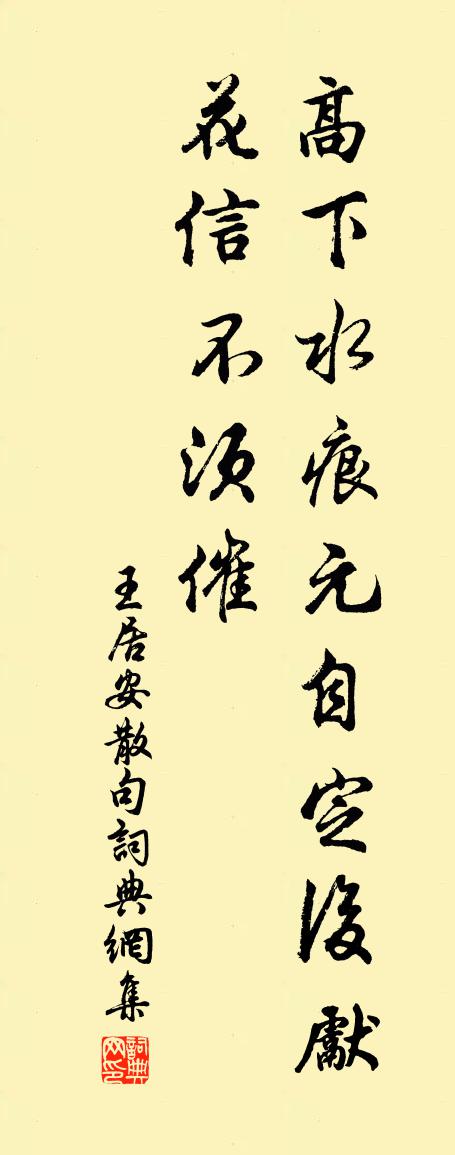 高下水痕元自定後獻
花信不須催
王居安散句詞典網集
詞典网印